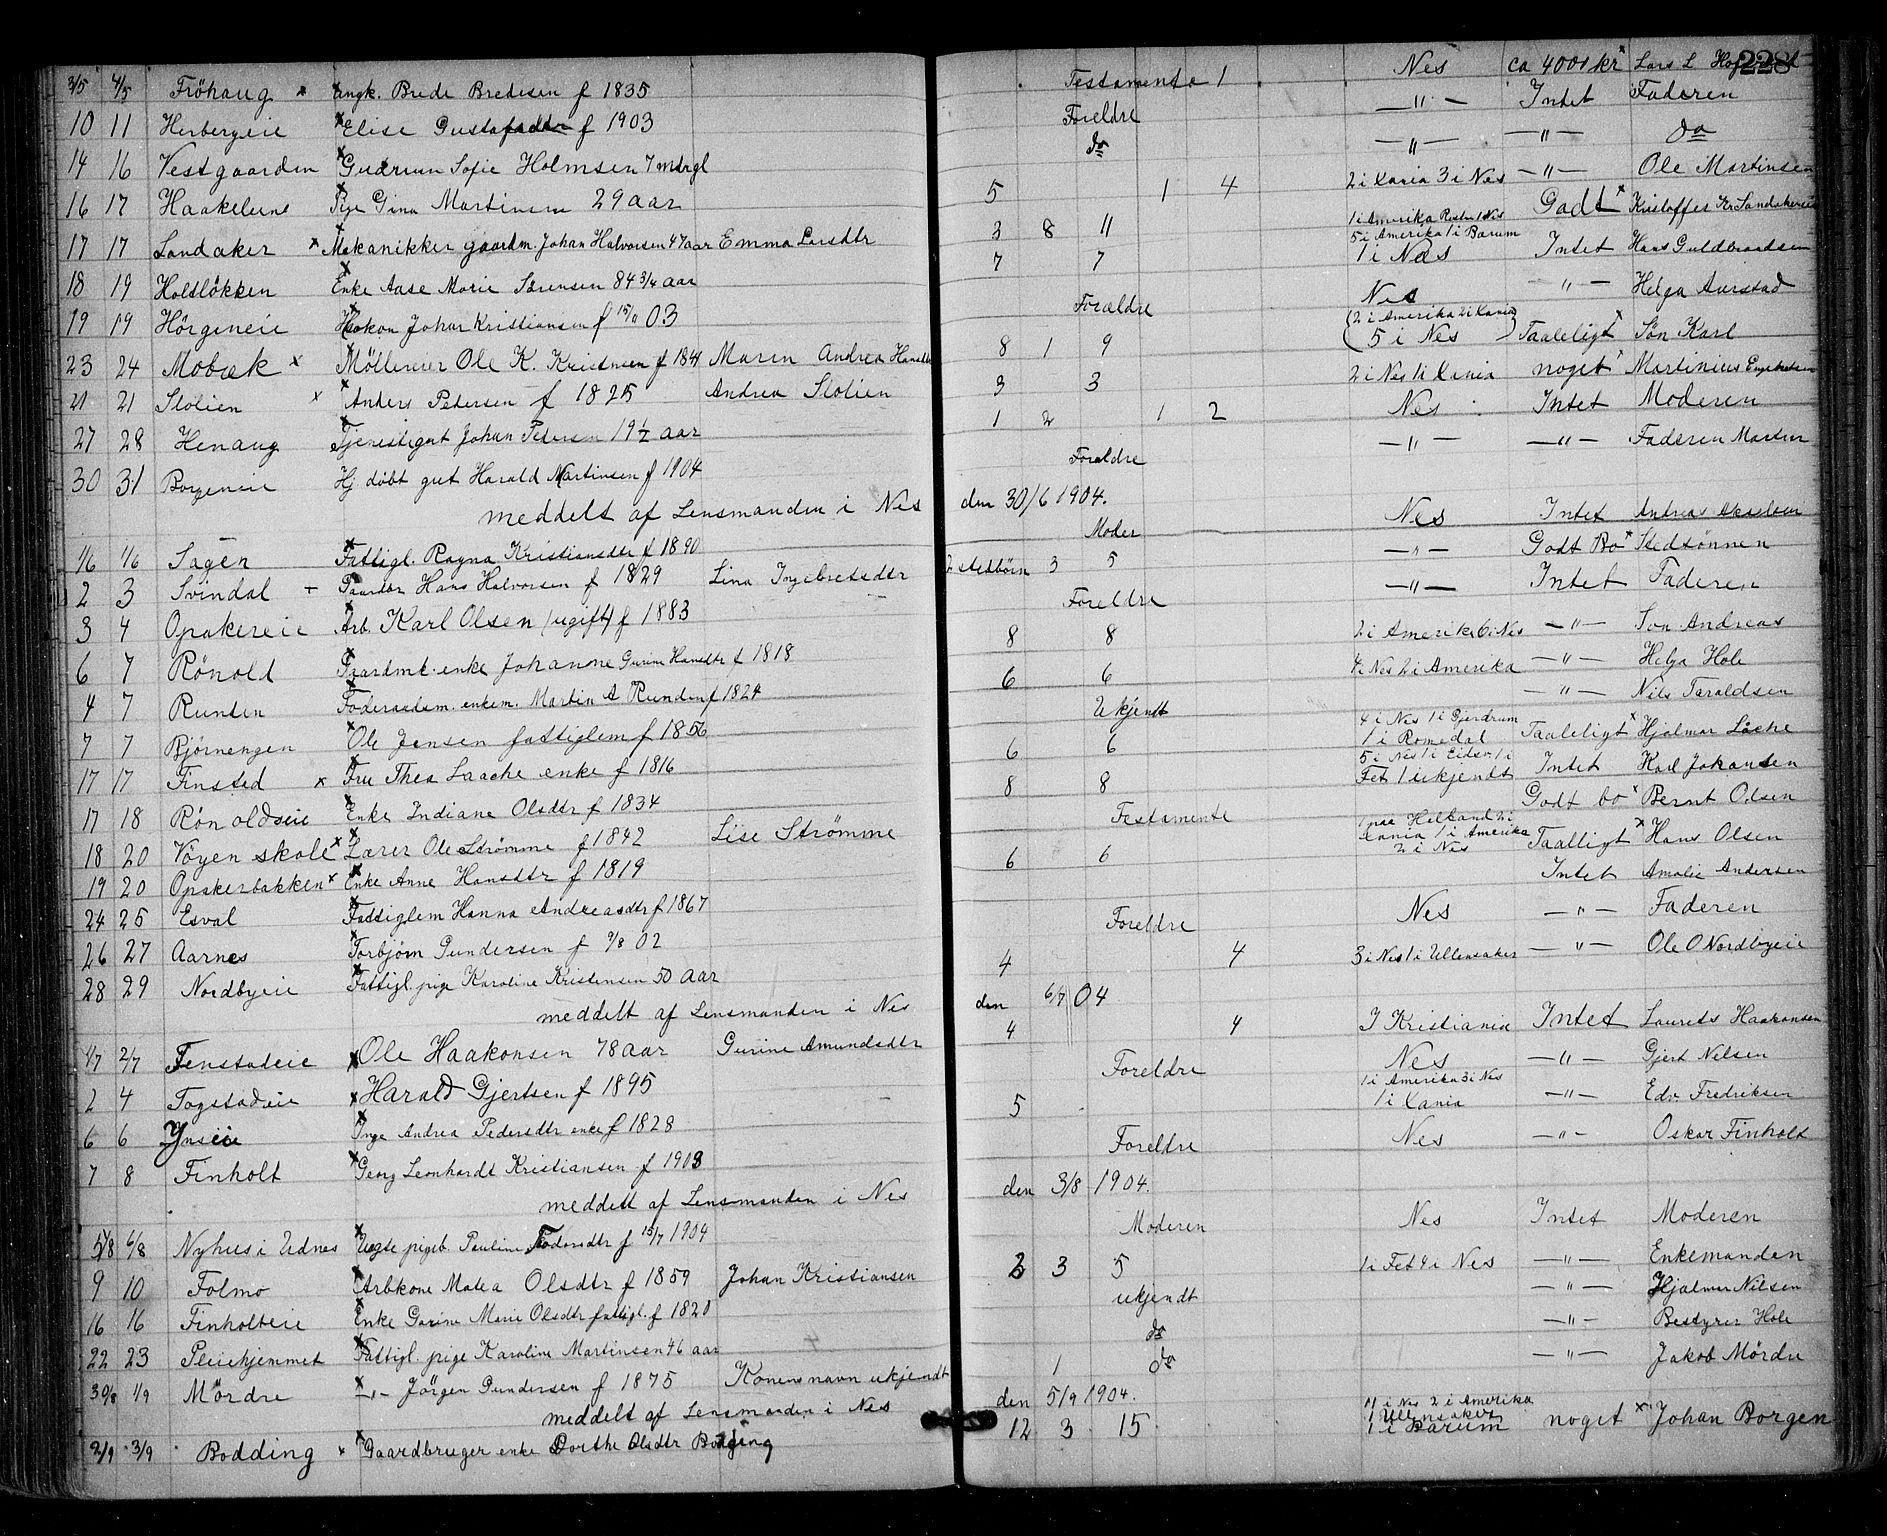 228
3/5 4/5 Fröhaug x ungk. Brede Bredesen f 1835 Testamente 1 Nes ca 4000 kr x Lars L
10 11 Herbergeie x Elise Gustafsdtr f 1903 Foreldre —"— Intet Faderen
14 16 Vestgaarden x Gudrun Sofie Holmsen 7 mdrgl do —"— —"— do
16 17 Haakelene x Pige Gina Martinsen 29 aar 5 1 4 2 i Xania 3 i Nes —"— Ole Martinsen
17 17 Sandaker x Mekanikker gaardm. Johan Halvorsen 47 aar Emma Larsdtr 3 8 11 1 i Amerika Resten i Nes Godt x Kristoffer Kr Sandakereie
18 19 Holtlökken x Enke Aase Marie Sörensen 84 3/4 aar 7 7 5 i Amerika 1 i Bærum 1 i Nes Intet Hans Guldbrandsen
19 19 Hörgeneie x Haakon Johan Kristiansen f 15/11 03 Foreldre Nes —"— Helga Aurstad
23 24 Mobæk x Mölleeier Ole K. Kristensen f 1841 Maren Andrea Hansdtr 8 1 9 (2 i Amerika 2 i Xania 5 i Nes) Taaleligt x Sön Karl
21 21 Stolien x Anders Petersen f 1825 Andrea Stolien 3 3 2 i Nes 1 i Xania noget x Martinius Engebretsen
27 28 Henaug x Tjenestegut Johan Petersen 19 1/2 aar 1 2 1 2 Nes Intet Moderen
30 31 Borgeneie Hj döbt gut Harald Martinsen f 1904 Foreldre —"— —"— Faderen Martin
meddelt af Lensmanden i Nes den 30/6 1904.
1/6 1/6 Sagen x Fattigl. Ragna Kristiansdtr f 1890 Moder Nes Intet Andreas Akselsen
2 3 Svindal + Gaardbr Hans Halvorsen f 1829 Lina Ingebretsdtr 2 stedbörn 3 5 —"— Godt Bo x Stedsönnen
3 4 Opakereie x Arb. Karl Olsen (ugift) f 1883 Foreldre —"— Intet Faderen
6 7 Rönold x Gaardmd. enke Johanne Gurine Hansdtr f 1818 8 8 2 i Amerika 6 i Nes —"— Sön Andreas
4 7 Runden x Föderaadsm. enkem. Martin A Runden f 1824 6 6 4 i Nes 2 i Amerika —"— Helga Hole
7 7 Björnengen x Ole Jensen fattiglem f 1856 Ukjendt —"— Nils Taraldsen
17 17 Finstad x Fru Thea Laache enke f 1816 6 6 4 i Nes 1 i Gjerdrum 1 i Romedal Taaleligt x Hjalmar Låche
17 18 Rönoldseie x Enke Indiane Olsdtr f 1834 8 8 5 i Nes 1 i Eidsv. 1 i Fet 1 ukjendt Intet Karl Johansen
18 20 Vöyen skole x Lærer Ole Strömme f 1842 Lise Strömme Testamente Godt bo x Bernt Olsen
19 20 Opakerbakken x Enke Anne Hansdtr f 1819 6 6 1 paa Helland 2 i Xania 1 i Amerika 2 i Nes Taalligt x Hans Olsen
24 25 Esval x Fattiglem Hanna Andreasdtr f 1867 Intet Amalie Andersen
26 27 Aarnes x Torbjörn Gundersen f 9/8 02 Foreldre Nes —"— Faderen
28 29 Nordbyeie x Fattigl. pige Karoline Kristensen 50 aar 4 4 3 i Nes 1 i Ullensaker —"— Ole O Nordbyeie
meddelt af Lensmanden i Nes den 6/7 04
1/7 2/7 Fenstadeie x Ole Haakonsen 78 aar Gurine Amundsdtr 4 4 I Kristiania Intet Laurits Haakonsen
2 4 Togstadeie x Harald Gjertsen f 1895 Foreldre Nes —"— Gjert Nilsen
6 6 Ynseie x Inge Andrea Pedersdtr enke f 1828 5 1 i Amerika 3 i Nes 1 i Xania —"— Edv Fredriksen
7 8 Finholt x Georg Leonhardt Kristiansen f 1903 Foreldre Nes —"— Oskar Finholt
meddelt af Lensmanden i Nes den 3/8 1904.
5/8 6/8 Nyhus i Udnes x Uegte pigeb. Pauline Todorsdtr f 15/7 1904 Moderen Nes Intet Moderen
9 10 Folmo x Arbkone Matea Olsdtr f 1859 Johan Kristiansen 2 3 5 1 i Fet 4 i Nes —"— Enkemanden
16 16 Finholteie x Enke Marie Olsdtr fattigl. f 1820 ukjendt —"— Hjalmar Nilsen
22 23 Pleiehjemmet x Fattigl. pige Karoline Martinsen 46 aar do —"— Bestyrer Hole
30/8 1/9 Mördre x —"— Jörgen Gundersen f 1875 Konens navn ukjendt 1 do —"— Jakob Mördre
meddelt af Lensmanden i Nes den 5/9 1904.
2/9 3/9 Bodding x Gaardbruger enke Dorthe Olsdtr Bodding 12 3 15 11 i Nes 2 i Amerika 1 Ullensaker 1 i Bærum noget x Johan Borgen